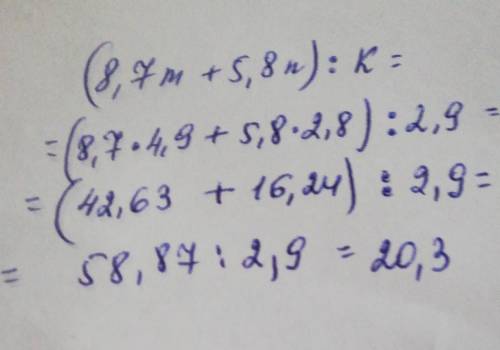 (8,7m + 5,8n) : K =
= (8,7 · 4,9 + 5,8 · 2,8) : 2,9 =
= (42,63 + 16,24) : 2,9 =
= 58,87 : 2,9 = 20,3